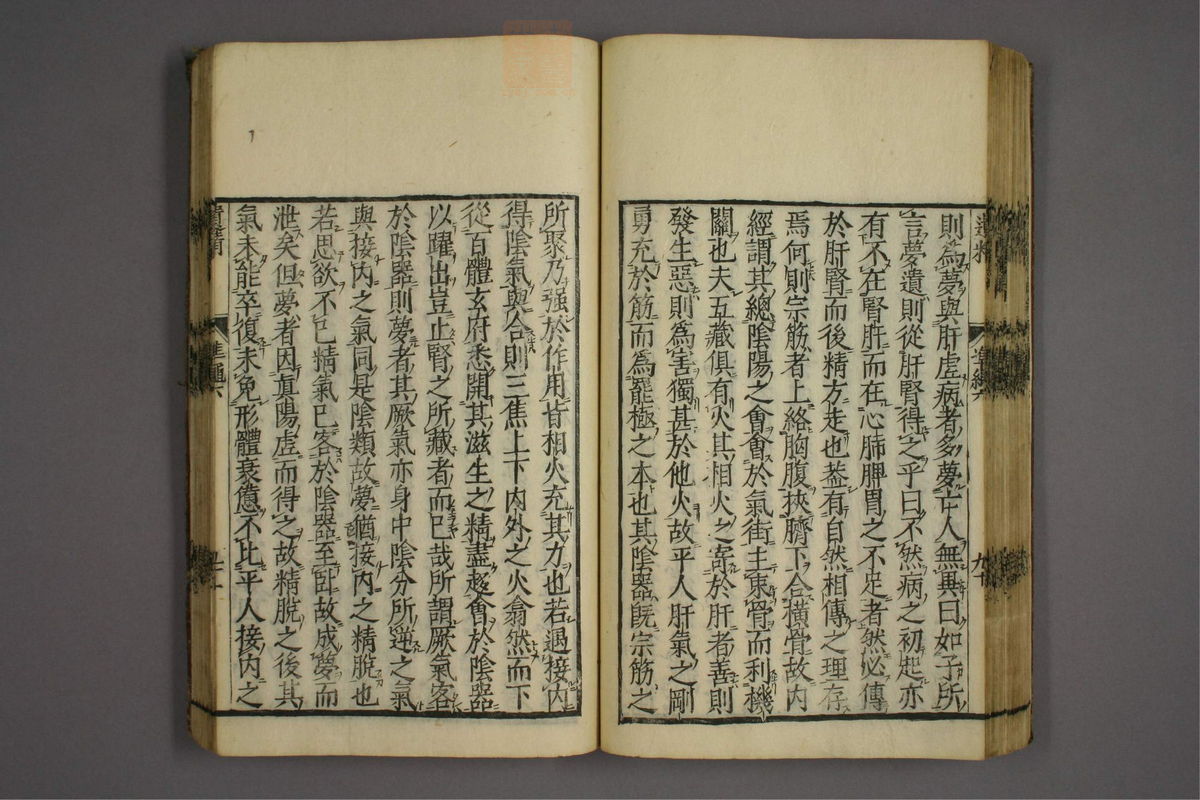 則為夢與肝虛病者多夢亡人無異曰如子所
言夢遺則從肝腎得之乎曰不然病之初起亦
有不在腎肝而在心肺脾胃之不足者然必傳
於肝腎而後精方走也蓋有自然相傳之理存
焉何則宗筋者上絡胸腹挾臍下合橫骨故内
經謂其總陰陽之會會於氣街主束骨而利機
關也夫五藏俱有火其相火之寄於肝者善則
發生惡則為害獨甚於他火故平人肝氣之剛
勇充於筋而為罷極之本也其陰器既宗筋之
所聚乃强於作用皆相火充其力也若遇接内
得陰氣與合則三焦上下内外之火翕然而下
從百體玄府悉開其滋生之精盡趍會於陰器
以躍出豈止腎之所藏者而已哉所謂厥氣客
於陰器則夢者其厥氣亦身中陰分所逆之氣
與接内之氣同是陰類故夢猶接内之精脫也
若思欲不已精氣已客於陰器至卧故成夢而
泄矣但夢者因眞陽虛而得之故精脫之後其
氣未能卒復未免形體衰憊不比平人接内之